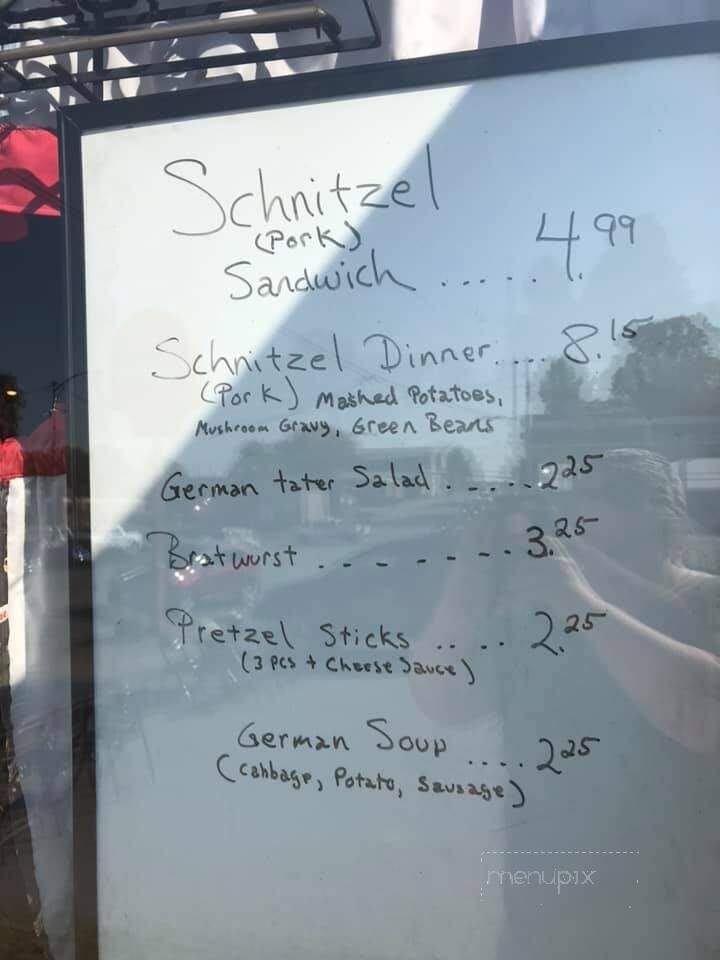 Schnitzel
(Pork)
Sandwich ...... 4.99
Schnitzel Dinner..... 8.15
(Pork) Mashed Potatoes,
Mushroom Gravy, Green Beans
German tater Salad ...... 2.25
Bratwurst . - - - - - - . 3.25
Pretzel Sticks ..... 2.25
(3 pcs + Cheese Sauce)
German Soup .... 2.25
(Cabbage, Potato, Sausage)
menupix